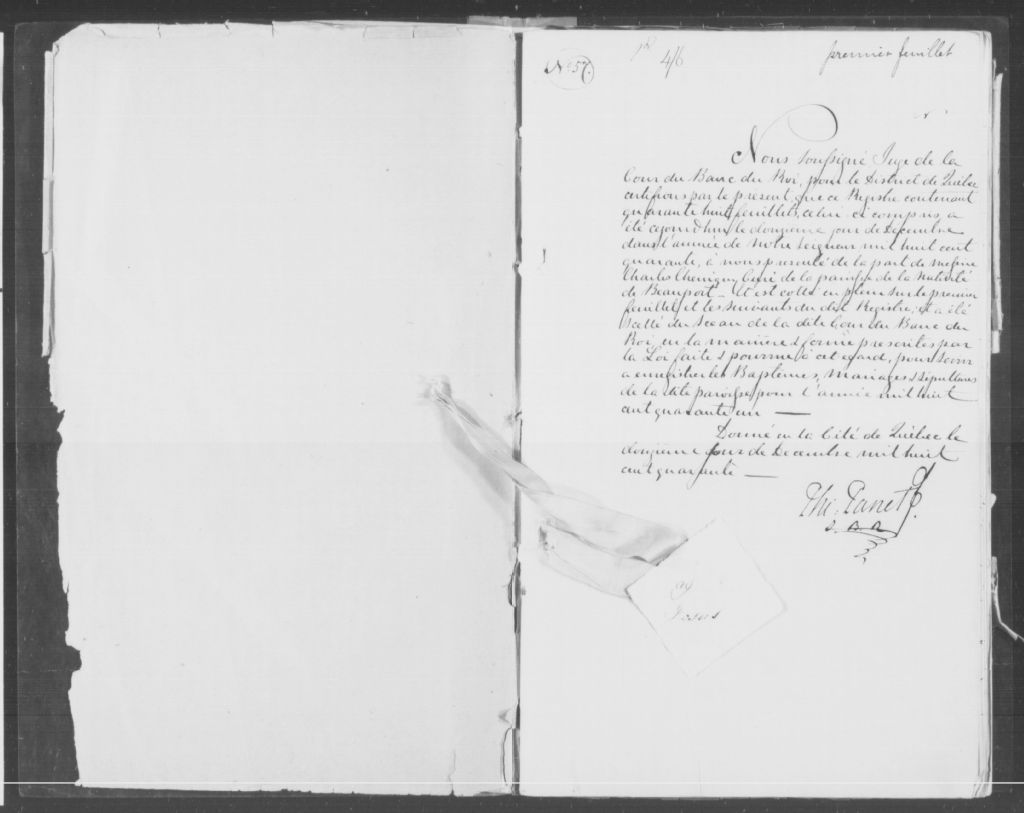 No 57.
4/6
premier feuillet
Nous soussigné Juge de la
Cour du Banc du Roi, pour le District de Québec
certifions par le présent que ce Registre contenant
quarante huit feuillets, celui-ci compris, a
été cejourd'hui le douzieme jour de Decembre
dans l'année de Notre Seigneur mil huit cent
quarante, à nous presenté de la part de Messire
Charles Chiniquy Curé de la paroisse de la Nativité
de Beauport - et est cotté en plein sur le premier
feuillet et les suivants du dit Registre; et a été
scellé du Sceau de la dite Cour du Banc du
Roi, en la maniere & forme prescrites par
la Loi faite & pourvue à cet egard, pour servir
a enregistrer les Baptemes, Mariages & Sépultures
de la dite paroisse pour l'année mil huit
cent quarante un —
Donné en la Cité de Québec le
douzieme jour de Decembre mil huit
cent quarante —
Phi: Panet